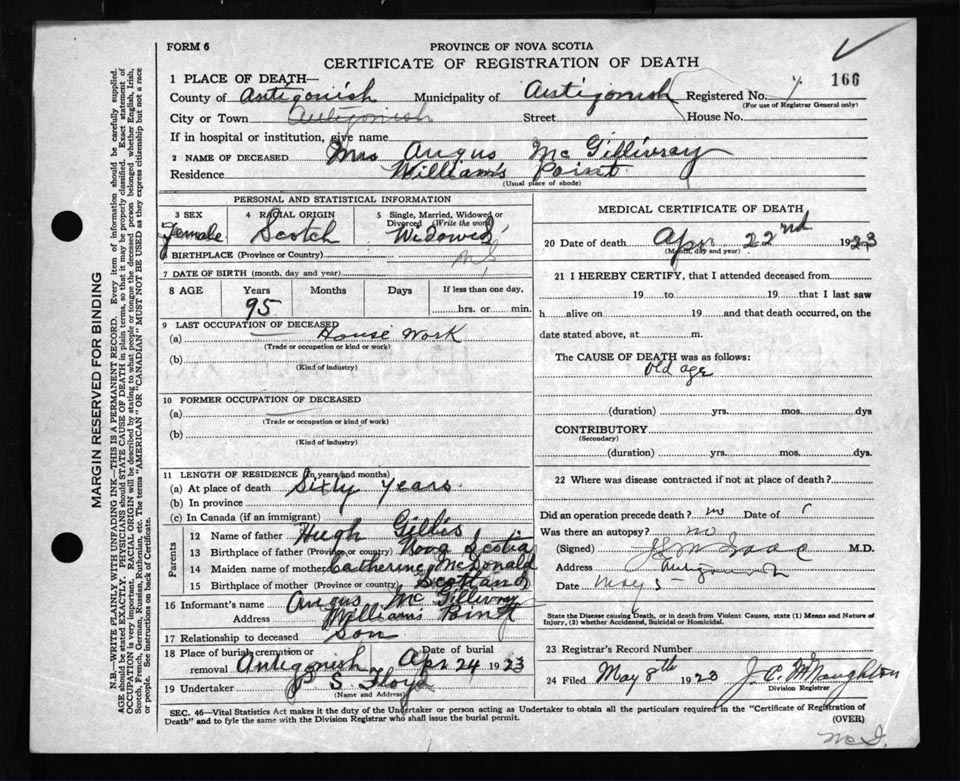 FORM 6
PROVINCE OF NOVA SCOTIA
CERTIFICATE OF REGISTRATION OF DEATH
166
1 PLACE OF DEATH—
County of Antigonish Municipality of Antigonish Registered No.
(For use of Registrar General only)
City or Town Antigonish Street House No.
If in hospital or institution, give name
2 NAME OF DECEASED Mrs Angus McGillivray
Residence William's Point
(Usual place of abode)
PERSONAL AND STATISTICAL INFORMATION
3 SEX Female
4 RACIAL ORIGIN Scotch
5 Single, Married, Widowed or Divorced (Write the word) Widowed
6 BIRTHPLACE (Province or Country) N.S.
7 DATE OF BIRTH (month, day and year)
8 AGE Years Months Days If less than one day,
95 hrs. or min.
9 LAST OCCUPATION OF DECEASED
(a) House Work
(Trade or occupation or kind or work)
(b)
(Kind of industry)
10 FORMER OCCUPATION OF DECEASED
(a)
(Trade or occupation or kind of work)
(b)
(Kind of industry)
11 LENGTH OF RESIDENCE (in years and months)
(a) At place of death Sixty years.
(b) In province
(c) In Canada (if an immigrant)
Parents
12 Name of father Hugh Gillis
13 Birthplace of father (Province or country) Nova Scotia
14 Maiden name of mother Catherine McDonald
15 Birthplace of mother (Province or country) Scotland
16 Informant's name Angus McGillivray
Address Williams Point
17 Relationship to deceased Son
18 Place of burial, cremation or removal Antigonish Date of burial Apr 24 1923
19 Undertaker P S Floyd
(Name and Address)
MEDICAL CERTIFICATE OF DEATH
20 Date of death Apr 22nd 1923
(Month, day and year)
21 I HEREBY CERTIFY, that I attended deceased from
19 to 19 that I last saw
h alive on 19 and that death occurred, on the
date stated above, at m.
The CAUSE OF DEATH was as follows:
old age
(duration) yrs. mos. dys
CONTRIBUTORY
(Secondary)
(duration) yrs. mos. dys.
22 Where was disease contracted if not at place of death?
Did an operation precede death? no Date of
Was there an autopsy? no
(Signed) M.D.
Address Antigonish
Date May 5
State the Disease causing Death, or in death from Violent Causes, state (1) Means and Nature of
Injury, (2) whether Accidental, Suicidal or Homicidal.
23 Registrar's Record Number
24 Filed May 8th 1923 J. C. McNaughton
Division Registrar
SEC. 46—Vital Statistics Act makes it the duty of the Undertaker or person acting as Undertaker to obtain all the particulars required in the "Certificate of Registration of
Death" and to fyle the same with the Division Registrar who shall issue the burial permit.
(OVER)
McG.
MARGIN RESERVED FOR BINDING
N.B.—WRITE PLAINLY WITH UNFADING INK—THIS IS A PERMANENT RECORD. Every item of information should be carefully supplied.
AGE should be stated EXACTLY. PHYSICIANS should STATE CAUSE OF DEATH in plain terms, so that it may be properly classified. Exact statement of
OCCUPATION is very important. RACIAL ORIGIN will be described by stating to what people or tongue the deceased person belonged whether English, Irish,
Scotch, French, German, Russian, Ruthenian, etc. The terms "AMERICAN" OR "CANADIAN" MUST NOT BE USED as they express citizenship but not a race
or people. See instructions on back of Certificate.